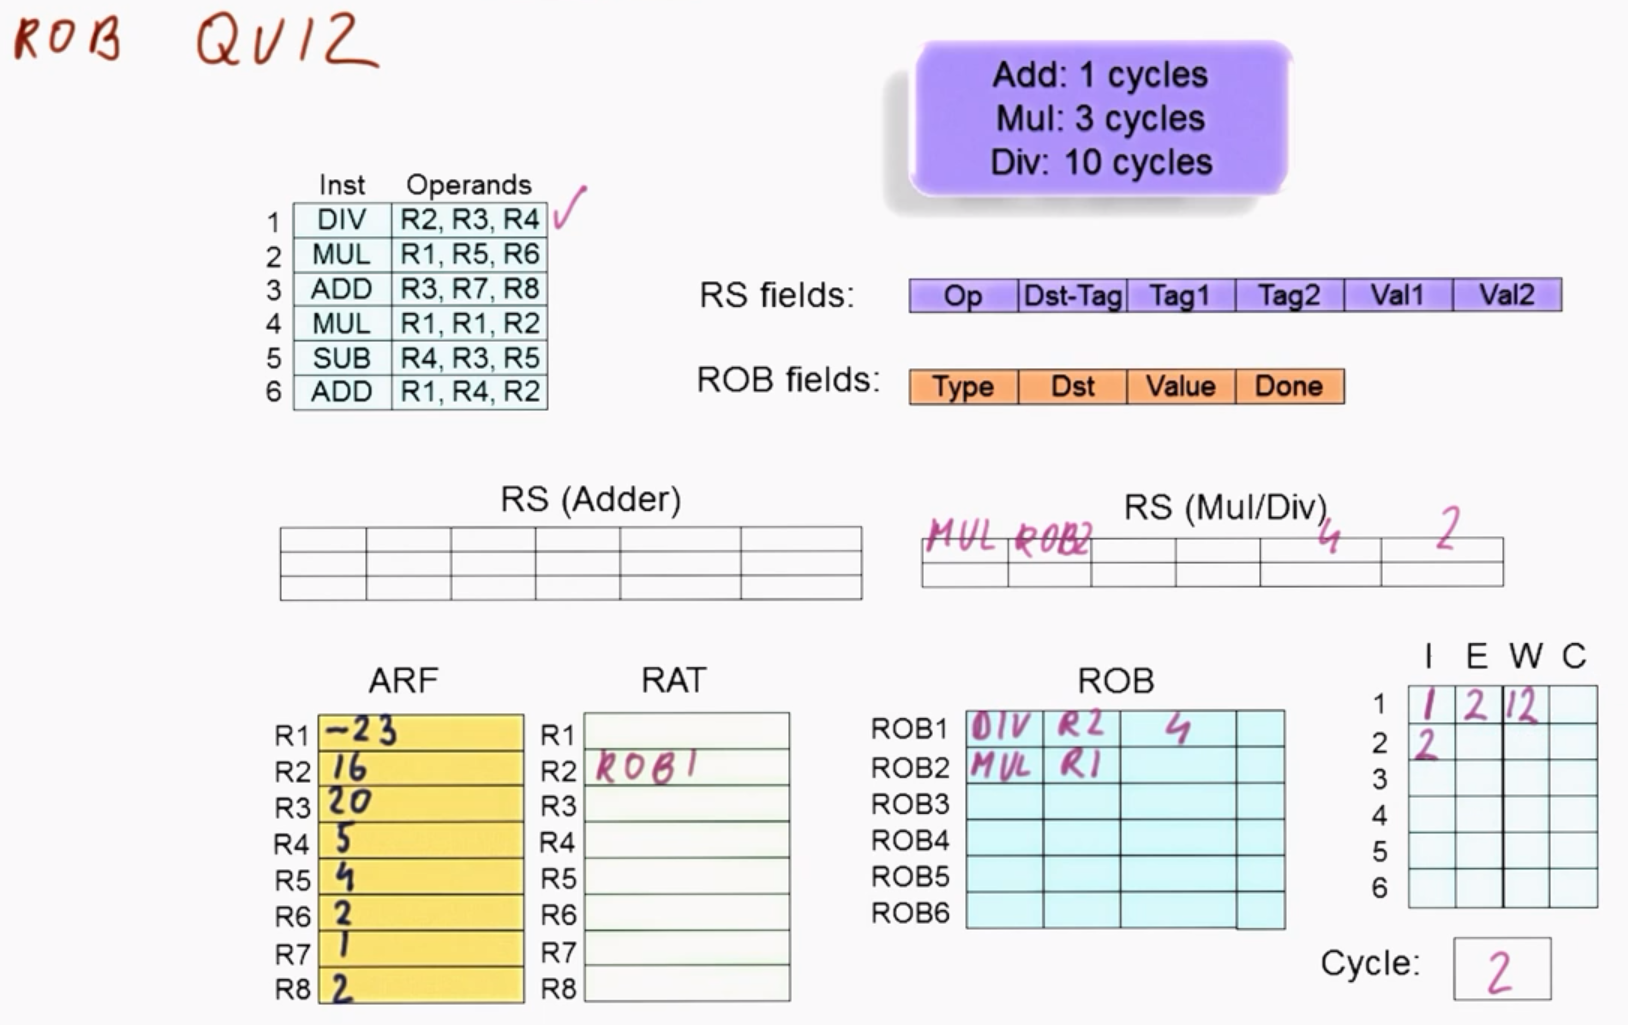 ROB QUIZ
Add: 1 cycles
Mul: 3 cycles
Div: 10 cycles
Inst Operands
1 DIV R2, R3, R4 ✓
2 MUL R1, R5, R6
3 ADD R3, R7, R8
4 MUL R1, R1, R2
5 SUB R4, R3, R5
6 ADD R1, R4, R2
RS fields: Op Dst-Tag Tag1 Tag2 Val1 Val2
ROB fields: Type Dst Value Done
RS (Adder)
RS (Mul/Div)
MUL ROB2 4 2
ARF
R1 -23
R2 16
R3 20
R4 5
R5 4
R6 2
R7 1
R8 2
RAT
R1
R2 ROB1
R3
R4
R5
R6
R7
R8
ROB
ROB1 DIV R2 4
ROB2 MUL R1
ROB3
ROB4
ROB5
ROB6
I E W C
1 1 2 12
2 2
3
4
5
6
Cycle: 2